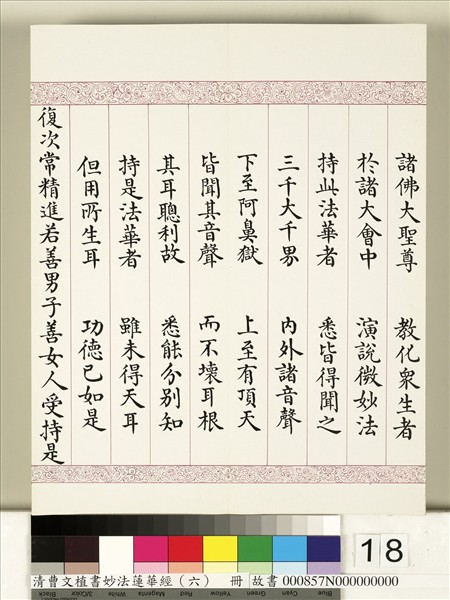 諸佛大聖尊 教化眾生者
於諸大會中 演說微妙法
持此法華者 悉皆得聞之
三千大千界 內外諸音聲
下至阿鼻獄 上至有頂天
皆聞其音聲 而不壞耳根
其耳聰利故 悉能分別知
持是法華者 雖未得天耳
但用所生耳 功德已如是
復次常精進若善男子善女人受持是
18
Black
3/Color
White
Magenta
Red
Yellow
Green
Cyan
Blue
清曹文植書妙法蓮華經（六） 冊 故書 000857N000000000